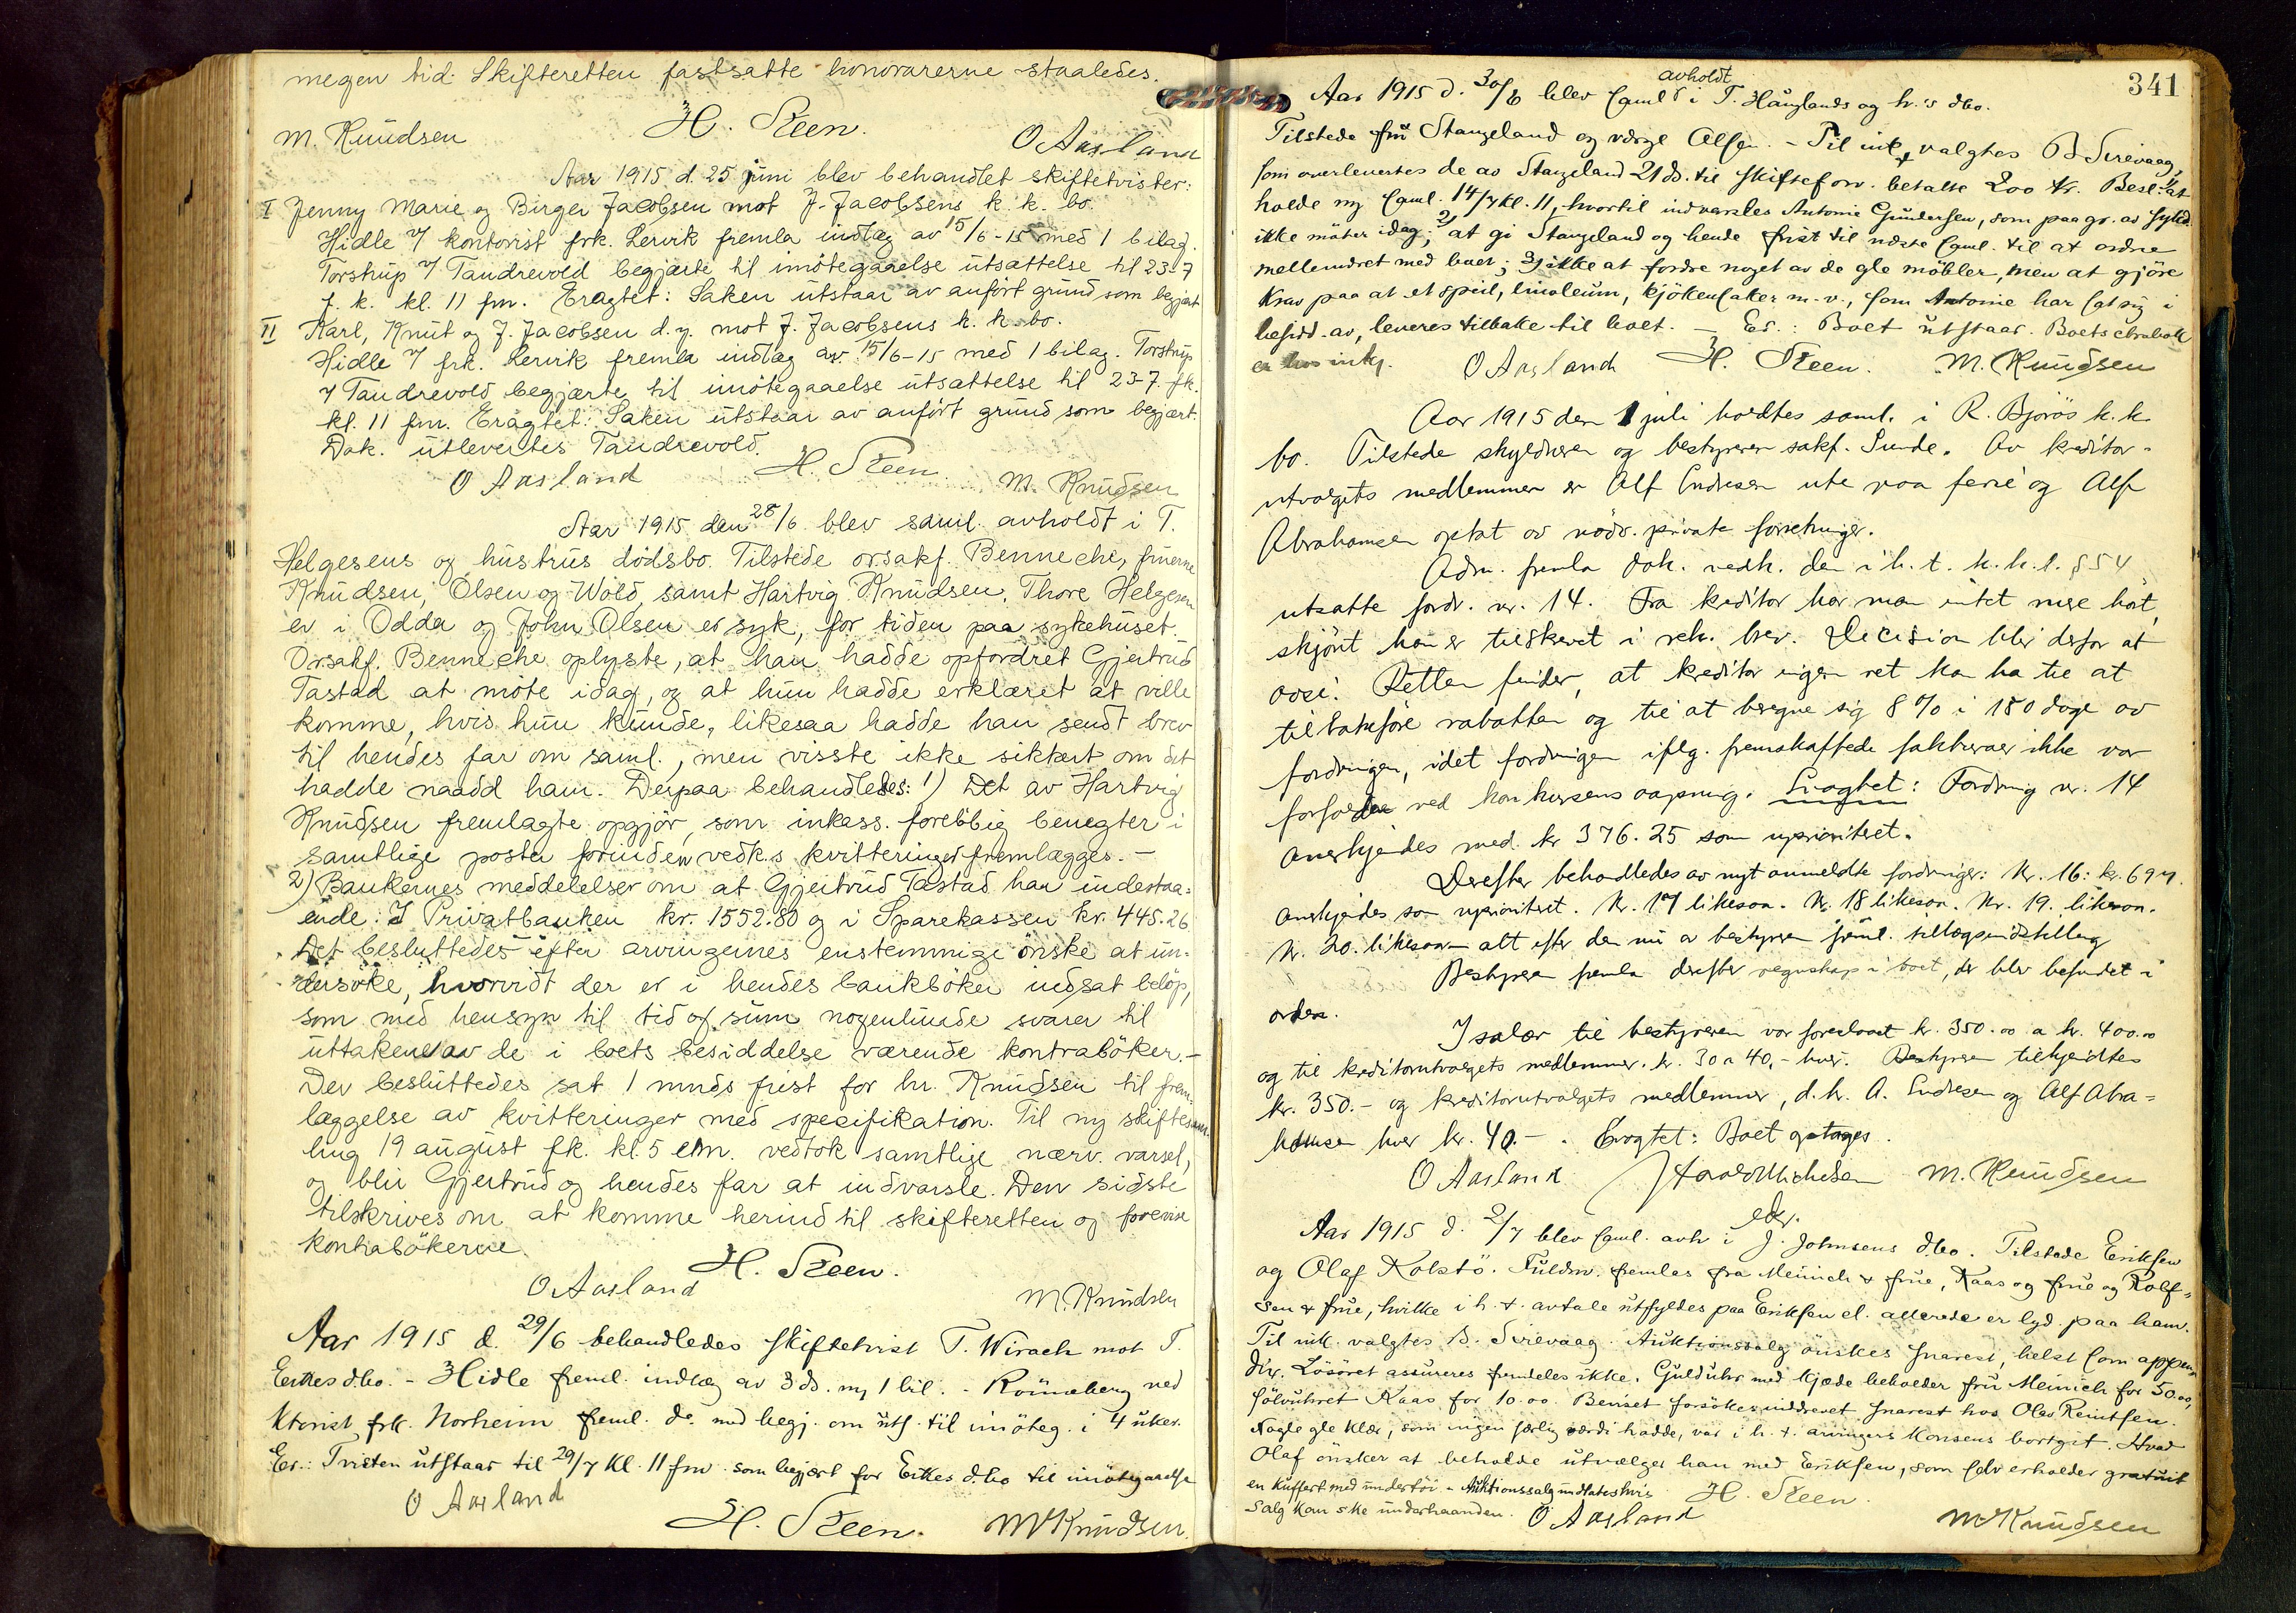 megen tid. Skifteretten fastsatte honorarerne staaledes.
M. Knudsen H. Steen. O Aasland
Aar 1915 d. 25 juni blev behandlet skiftetvister:
I Jenny Marie og Birger Jacobsen mot J. Jacobsens k. k. bo.
Hidle v/ kontorist frk. Lervik fremla indlæg av 15/6-15 med 1 bilag.
Torstrup v/ Tandrevold begjærte til imötegaaelse utsættelse til 23-7
f. k. kl. 11 fm. Eragtet: Saken utstaar av anfört grund som begjært
II Karl, Knut og J. Jacobsen d.y. mot J. Jacobsens k. k. bo.
Hidle v/ frk. Lervik fremla indlæg av 15/6-15 med 1 bilag. Torstrup
v/ Tandrevold begjærte til imötegaaelse utsættelse til 23-7. fk.
kl. 11 fm. Eragtet: Saken utstaar av anfört grund som begjært.
Dok. utlevertes Tandrevold.
O Aasland H. Steen M. Knudsen
Aar 1915 den 28/6 blev saml. avholdt i T.
Helgesens og hustrus dödsbo. Tilstede orsakf. Benneche, fruerne
Knudsen, Olsen og Wold, samt Hartvig Knudsen. Thore Helgesen
er i Odda og John Olsen er syk, for tiden paa sykehuset.
Orsakf. Benneche oplyste, at han hadde opfordret Gjertrud
Tastad at möte idag, og at hun hadde erklæret at ville
komme, hvis hun kunde, likesaa hadde han sendt brev
til hendes far om saml., men visste ikke sikkert om det
hadde naadd ham. Derpaa behandledes: 1) Det av Hartvig
Knudsen fremlagte opgjör, som inkass. forelöbig benegter i
samtlige poster forinden vedk.s kvitteringer fremlægges. -
2) Bankernes meddelelser om at Gjertrud Tastad har indestaa-
ende: I Privatbanken kr. 1552.80 og i Sparekassen kr. 445.26
Det besluttedes efter arvingernes enstemmige önske at un-
dersöke, hvorvidt der er i hendes bankböker indsat belöp,
som med hensyn til tid og sum nogenlunde svarer til
uttakene av de i boets besiddelse værende kontraböker. -
Der besluttedes sat 1 mnds frist for hr. Knudsen til frem-
læggelse av kvitteringer med spesifikation. Til ny skiftesam-
ling 19 august fk. kl. 5 em. vedtok samtlige nærv. varsel,
og blir Gjertrud og hendes far at indvarsle. Den sidste
tilskrives om at komme herind til skifteretten og forevise
kontrabökerne.
O Aasland H. Steen. M. Knudsen
Aar 1915 d. 29/6 behandledes skiftetvist T. Wirach mot T.
Eertes d.bo. - Hidle freml. indlæg av 3 ds. m/ 1 bil. - Rönneberg ved
ktorist frk. Norheim freml. do. med begj. om uts. til imöteg. i 4 uker.
Er.: Tvisten utstaar til 29/7 kl. 11 fm. som begjært for Eertes d.bo til imötegaaelse
O Aasland H. Steen. M Knudsen.
341
Aar 1915 d. 30/6 blev saml. avholdt i T. Hauglands og h.'s dbo.
Tilstede fru Stangeland og værge Olsen. - Til ink. valgtes B Sirevaag,
som overlevertes de av Stangeland 21 ds. til skifteforv. betalte 200 kr. Besl.: 1) at
holde ny saml. 14/7 kl. 11, hvortil indvarsles Antonie Gundersen, som paa gr. av sygd.
ikke möter idag; 2) at gi Stangeland og hende frist til næste saml. til at ordne
mellemværet med boet; 3) ikke at fordre noget av de gle möbler, men at gjöre
krav paa at et speil, linoleum, kjökensaker m.v., som Antonie har sat sig i
besidd. av, leveres tilbake til boet. - Er.: Boet utstaar. Boets
er hos inkj. O Aasland H. Steen. M. Knudsen
Aar 1915 den 1 juli holdtes saml. i R. Bjorös k.k.
bo. Tilstede skyldneren og bestyreren sakf. Sunde. Av kreditor-
utvalgets medlemmer er Alf Endresen ute paa ferie og Alf
Abrahamsen optat av nödv. private forretninger.
Adm. fremla dok. vedk. den i h. t. k. k. l. § 54
utsatte fordr. nr. 14. Fra kreditor har man intet mere hört,
skjönt han er tilskrevet i rek. brev. Decision blir derfor at
avsi. Retten finder, at kreditor ingen ret kan ha til at
tilbakeföre rabatten og til at beregne sig 8 % i 180 dage av
fordringen, idet fordringen iflg. fremskaffede fakturaer ikke var
forfalden ved konkursens aapning. Eragtet: Fordring nr. 14
anerkjendes med kr 376.25 som uprioritert.
Derefter behandledes av nyt anmeldte fordringer: Nr. 16: kr. 697.
anerkjendes som uprioritert. Nr. 17 likesaa. Nr. 18 likesaa. Nr. 19. likesaa.
Nr. 20. likesaa alt efter den nu av bestyreren freml. tillægsindstilling
Bestyreren fremla derefter regnskap i boet, der blev befundet i
orden.
I salær til bestyreren var foreslaaet kr. 350.00 a kr. 400.00
og til kreditorutvalgets medlemmer. kr. 30 a 40,- hver. Bestyreren tilkjendtes
kr. 350.- og kreditorutvalgets medlemmer, d.hr. A. Endresen og Alf Abra=
hamsen hver kr. 40.-. Eragtet: Boet optages.
O Aasland Harald Michelsen M. Knudsen
edr.
Aar 1915 d. 2/7 blev saml. avh i J. Johnsens d.bo. Tilstede Eriksen
og Olaf Kolstö. Fuldm. fremles fra Meinich & frue, Kaas og frue og Rolf-
sen & frue, hvilke i h. t. avtale utfyldes paa Eriksen el. allerede er lyd. paa ham.
Til ink. valgtes B. Sirevaag. Auktionssalg önskes snarest, helst som
dkr. Lösöret assureres fremdeles ikke. Gulduhr med kjæde beholder fru Meinich for 50.00,
sölvuhret Kaas for 10.00. Beviset forsökes inddrevet snarest hos Olav Reintsen.
Nogle gle klær, som ingen særlig værdi hadde, var i h. t. arvingers konsens bortgit. Hvad
Olaf önsker at beholde utvælger han med Eriksen, som selv erholder gratuit
en kuffert med undertöi - Auktionssalg undlates hvis H. Steen.
salg kan ske underhaanden. O Aasland M Knudsen